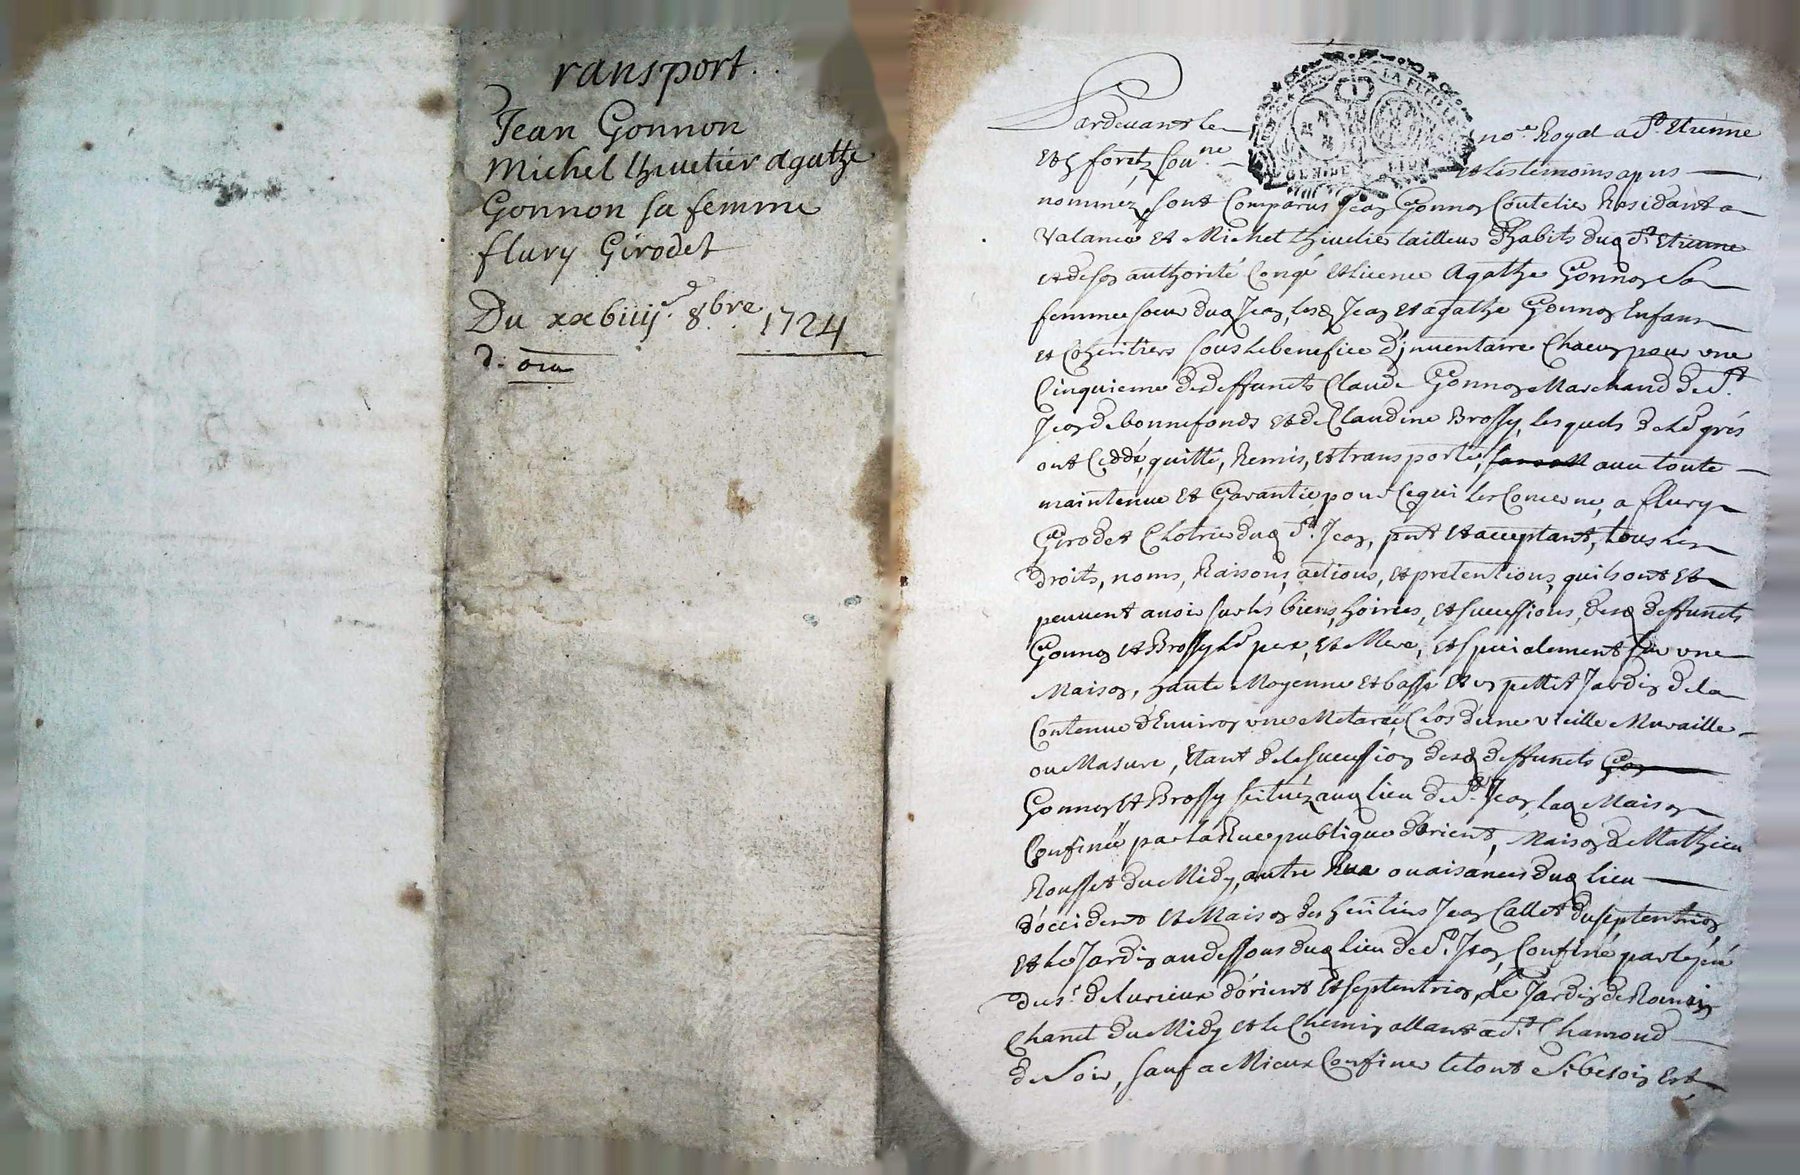 ransport.
Jean Gonnon
Michel thiuelier agathe
Gonnon sa femme
flury Girodet
Du xxbiiij.e 8bre 1724
Pardeuant le no.re Royal a S.t Etienne
Et les temoins apres
nommez, sont Comparus Jean Gonnon Coutelier Residant a
Valance Et Michel thiuelier tailleur d'habits dud S.t Etienne
et de son authorité Congé et licence Agathe Gonnon Sa
femme soeur dud Jean, lesd Jean et agathe Gonnon Enfans
et Coheritiers sous le benefice d'jnuentaire Chacun pour vne
Cinquieme de deffuncts Claude Gonnon Marchand de S.t
Jean de bonnefonds et de Claudine Brossy, lesquels de gré
ont Ceddé, quitté, Remis, et transporté, auec toute
maintenue Et Garantie, pour Cequi les Concerne, a flury
Girodet dud S.t Jean, pnt et acceptant, tous les
droits, noms, Raisons, actions, et pretentions, quils ont Et
peuuent auoir sur les biens, hoiries, et successions, desd deffuncts
Gonnon et Brossy pere, Et Mere, Et specialement sur vne
Maison, haute Moyenne et basse et vn pettit Jardin de la
Contenue d'Enuiron vne Metareé, Clos d'une vieille Muraille
ou Masure, Etant de la succession desd deffuncts
Gonnon et Brossy scituéz aud lieu de S.t Jean, lad Maison
Confineé par la Rue publique d'orient, Maison de Mathieu
Rousset du Midy, autre Rue ou aisances dud lieu
d'occident et Maison des heritiers Jean Callet du septentrion
Et le Jardin au dessous dud lieu de S.t Jean, Confiné par le
du s.r de lurieux d'orient et septentrion, Le Jardin de Romain
Chanet du Midy et le Chemin allant a S.t Chamond
de Soir, sauf a Mieux Confiner letout Si besoin Est,